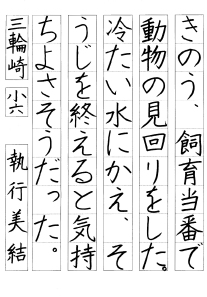 きのう、飼育当番で
動物の見回りをした。
冷たい水にかえ、そ
うじを終えると気持
ちよさそうだった。
三輪崎 小六 執行美結